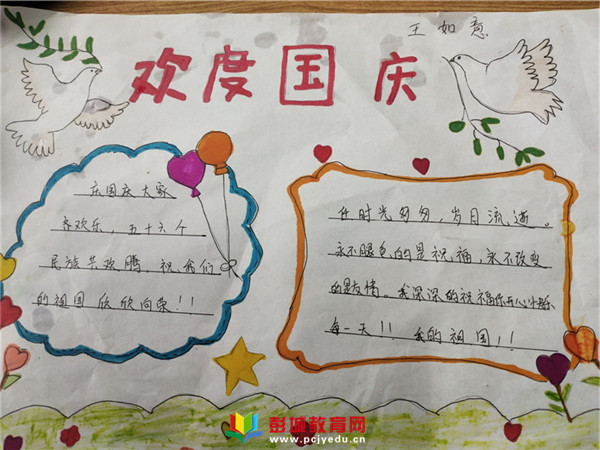 王如意
欢度国庆
庆国庆大家
齐欢乐，五十六个
民族共欢腾，祝我们
的祖国欣欣向荣！！
任时光匆匆，岁月流逝。
永不腿色的是祝福，永不改变
的是友情。我深深的祝福你开心快乐
每一天！！我的祖国！！
彭城教育网
www.pcjyedu.cn